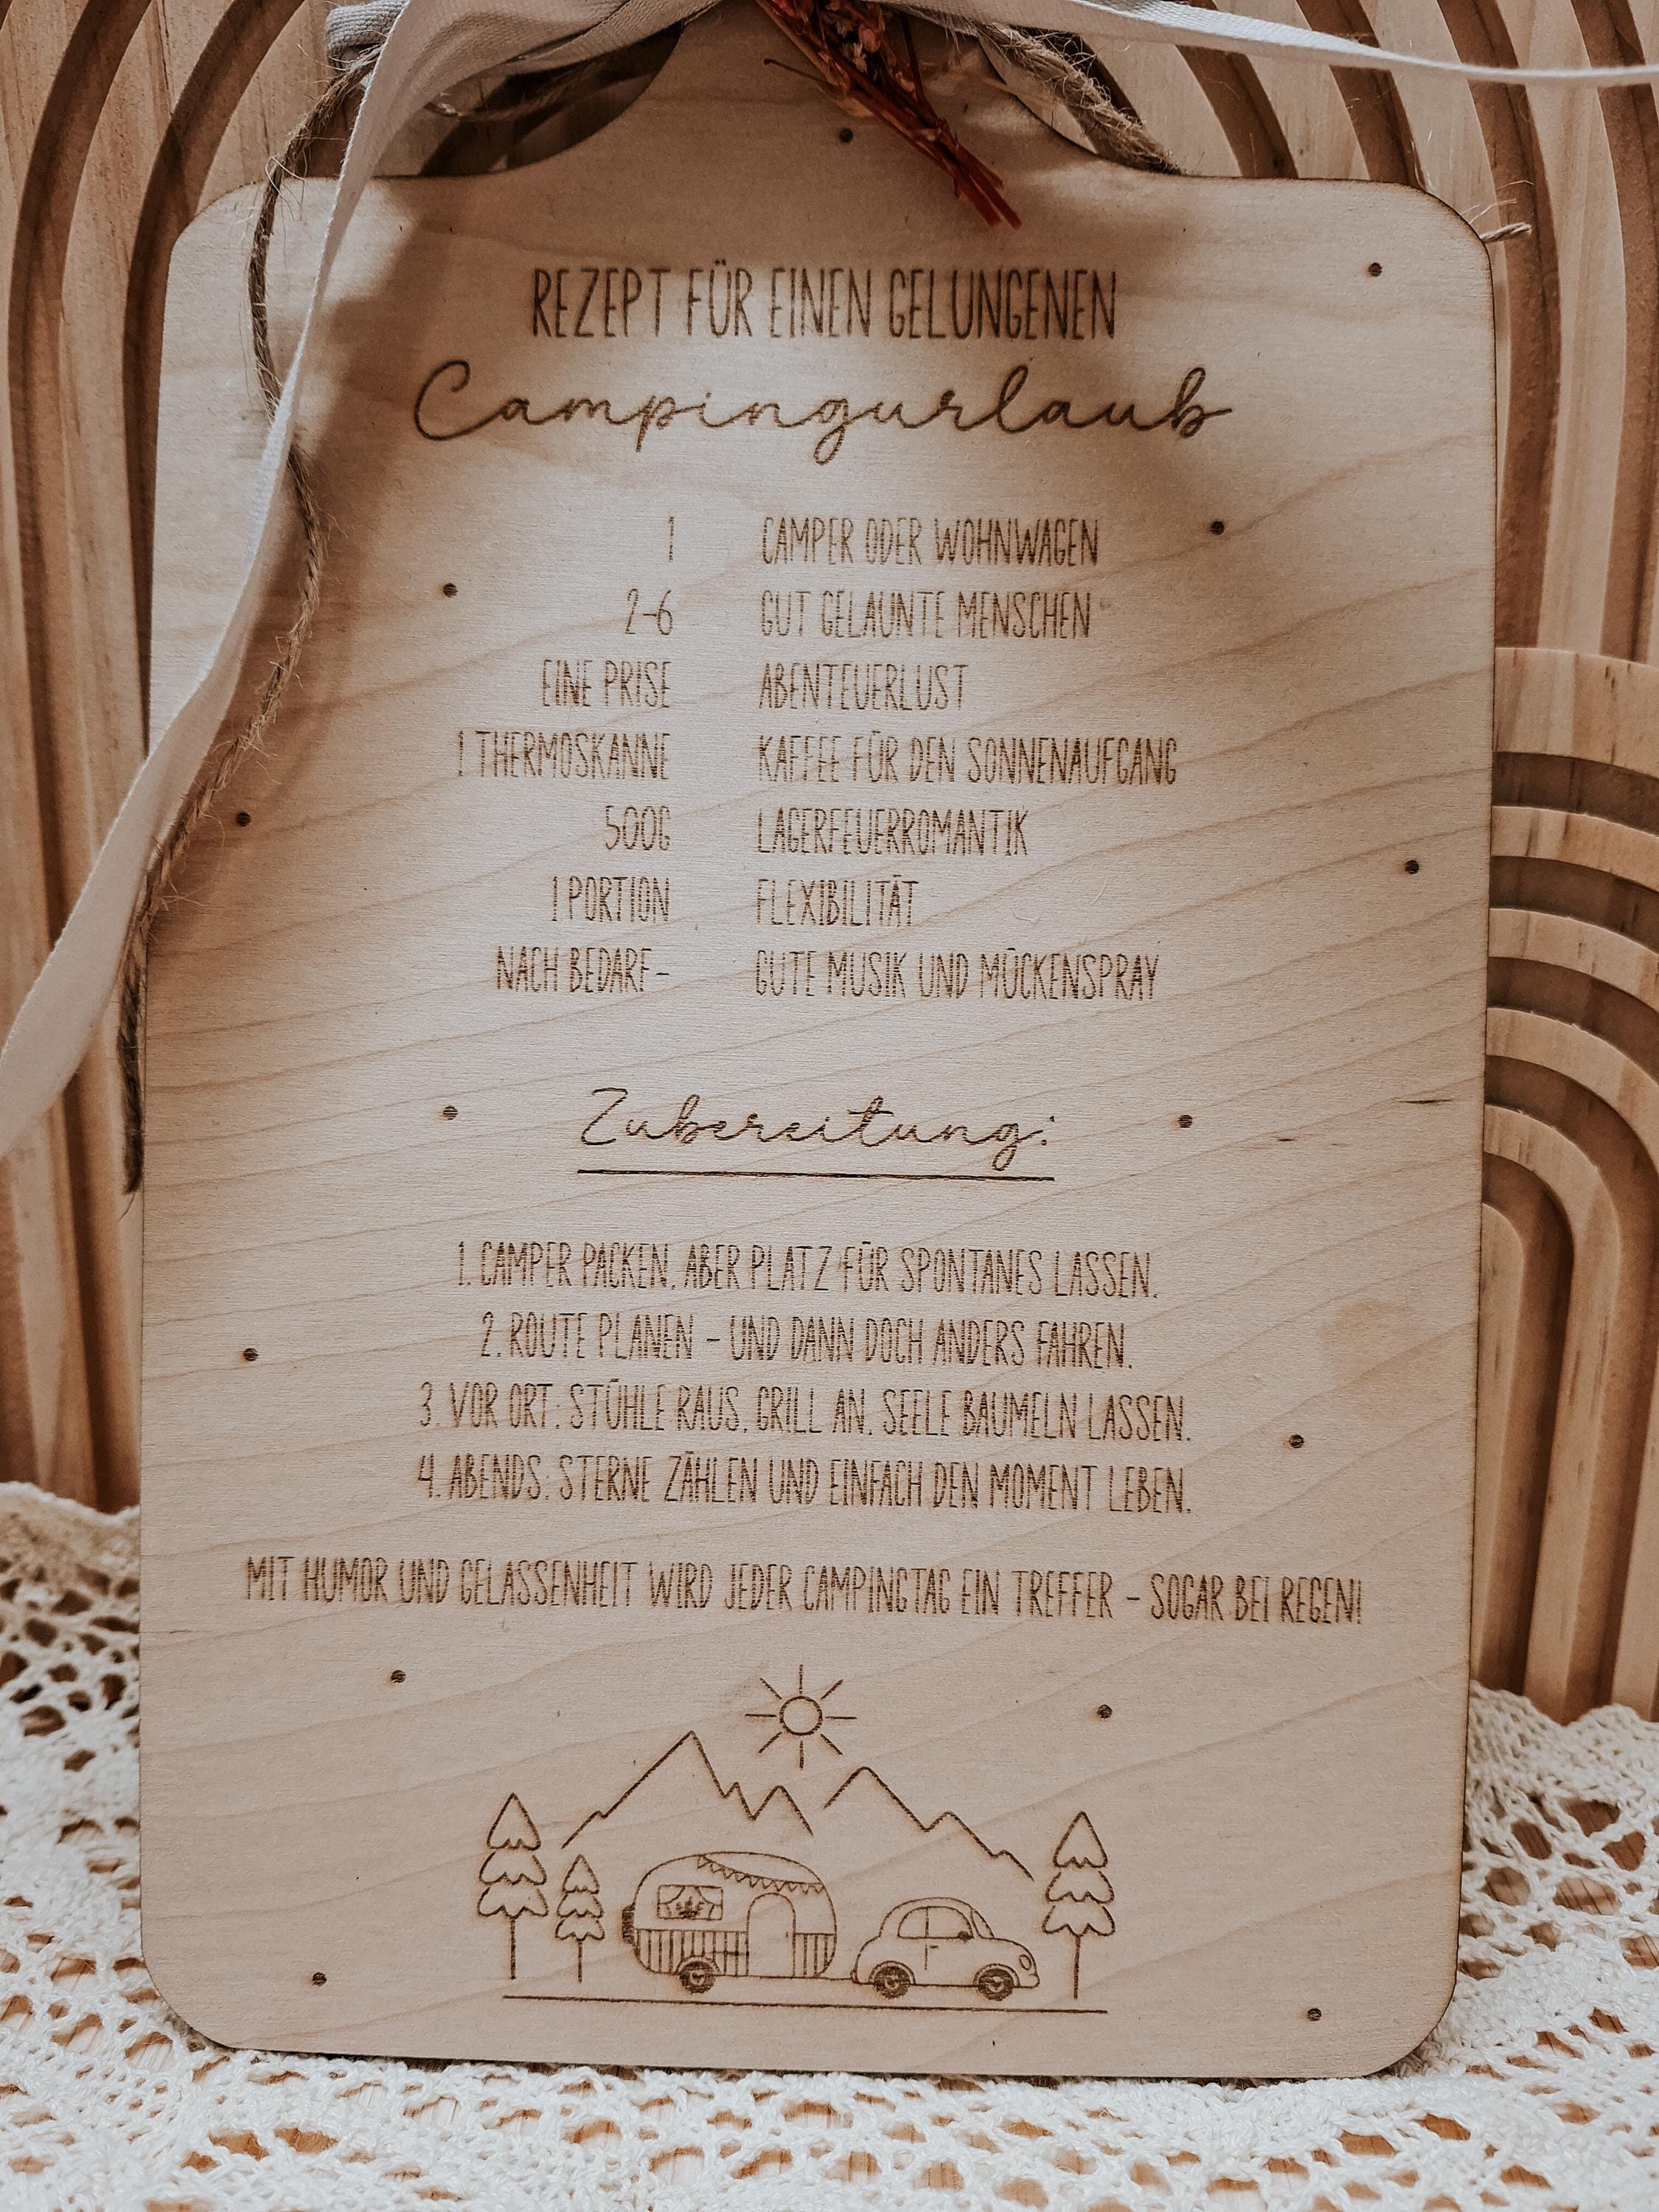 REZEPT FÜR EINEN GELUNGENEN
Campingurlaub
1 CAMPER ODER WOHNWAGEN
2-6 GUT GELAUNTE MENSCHEN
EINE PRISE ABENTEUERLUST
1 THERMOSKANNE KAFFEE FÜR DEN SONNENAUFGANG
500G LAGERFEUERROMANTIK
1 PORTION FLEXIBILITÄT
NACH BEDARF- GUTE MUSIK UND MÜCKENSPRAY
Zubereitung:
1. CAMPER PACKEN, ABER PLATZ FÜR SPONTANES LASSEN.
2. ROUTE PLANEN - UND DANN DOCH ANDERS FAHREN.
3. VOR ORT: STÜHLE RAUS, GRILL AN, SEELE BAUMELN LASSEN.
4. ABENDS: STERNE ZÄHLEN UND EINFACH DEN MOMENT LEBEN.
MIT HUMOR UND GELASSENHEIT WIRD JEDER CAMPINGTAG EIN TREFFER - SOGAR BEI REGEN!